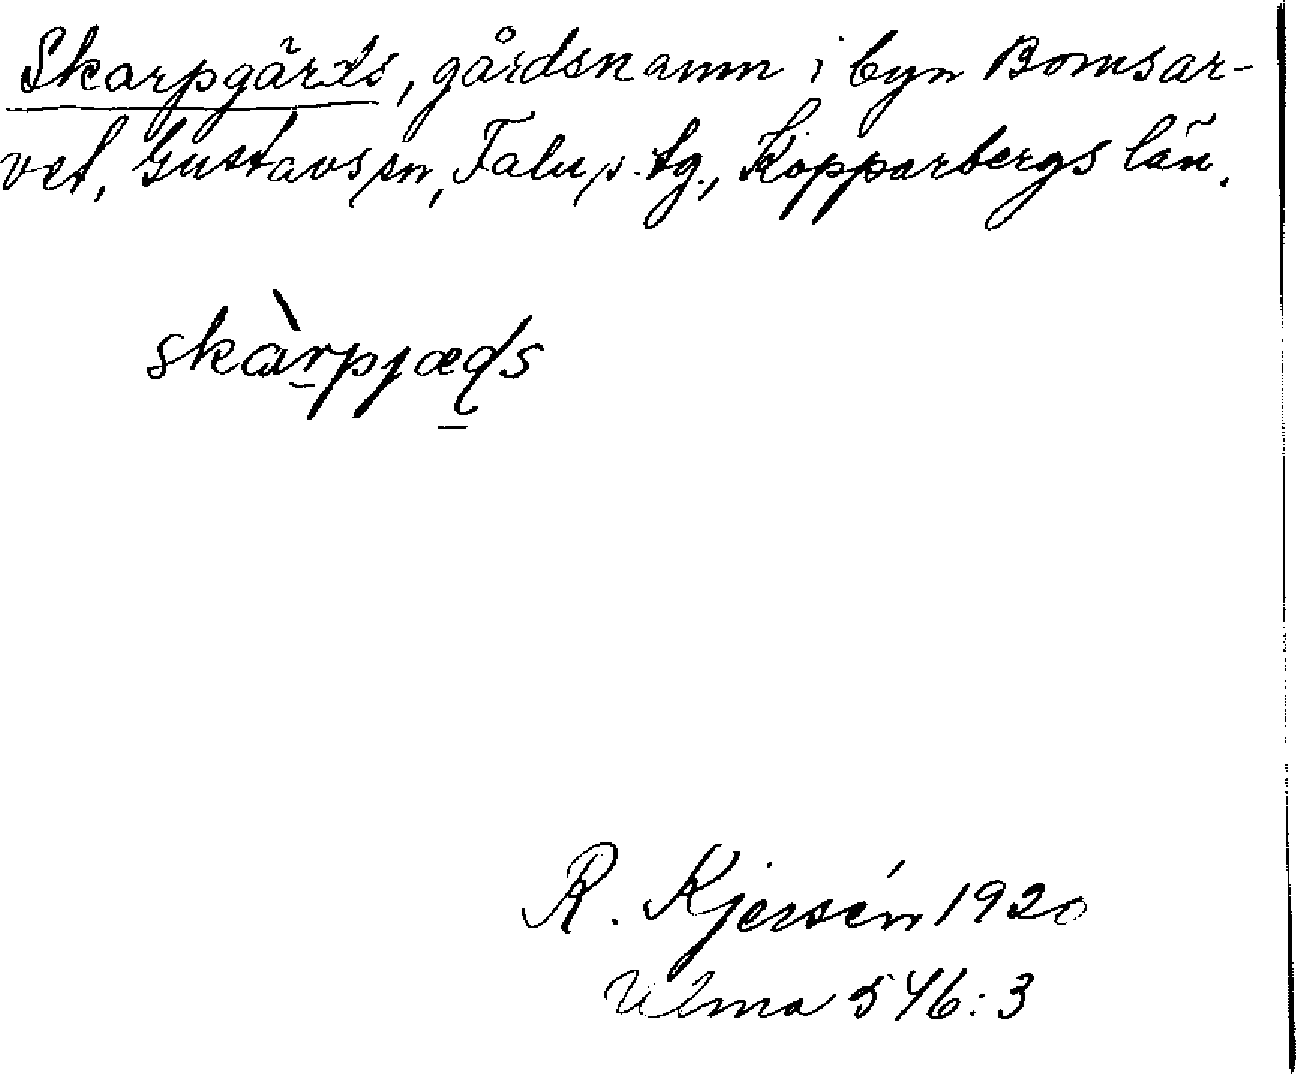 Skarpgärds, gårdsnamn i byn Bomsar-
vet, Gustavs sn, Falu s. tg., Kopparbergs län.
skàrpjæɖs
R. Kjersén 1920
Ulma 546:3